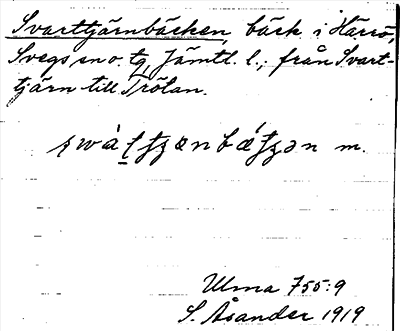 Svarttjärnbäcken, bäck i Härrö,
Svegs sn o. tg, Jämtl. l.; från Svart-
tjärn till Trötan.
m.
Ulma 755:9
S. Åsander 1919